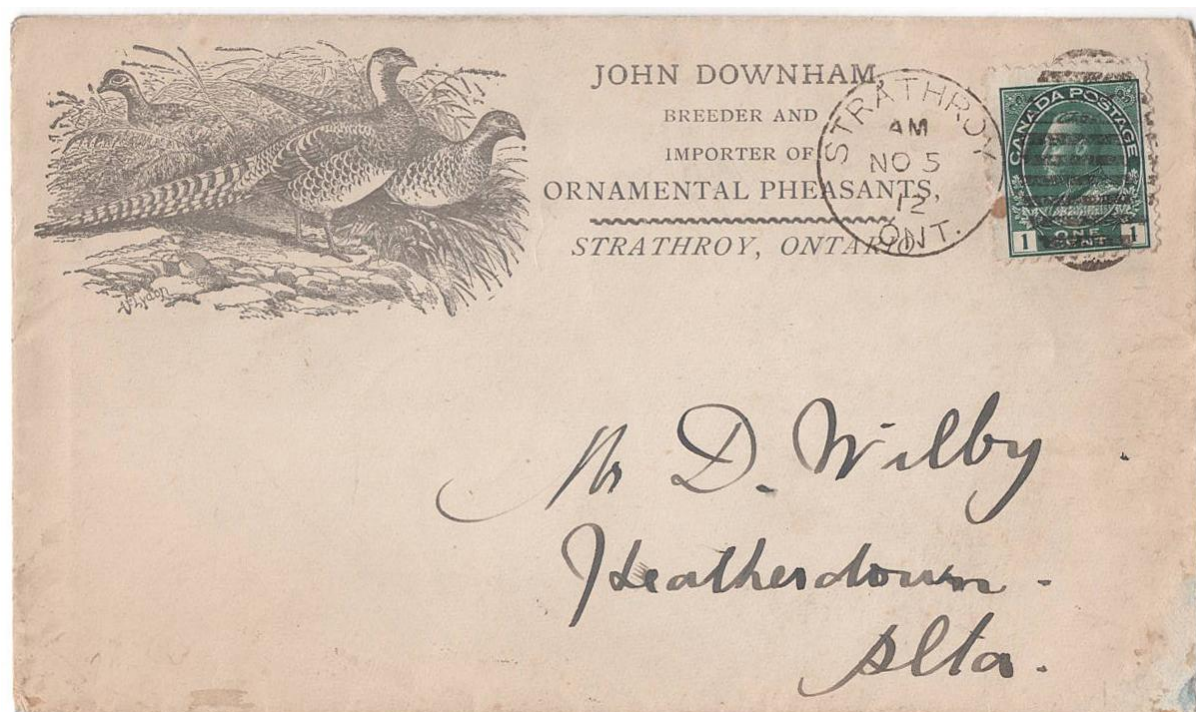 JOHN DOWNHAM,
BREEDER AND
IMPORTER OF
ORNAMENTAL PHEASANTS,
STRATHROY, ONTARIO
STRATHROY
AM
NO 5
12
ONT.
CANADA POSTAGE
1 ONE CENT 1
Mr D. Wilby
Heatherdown.
Alta.